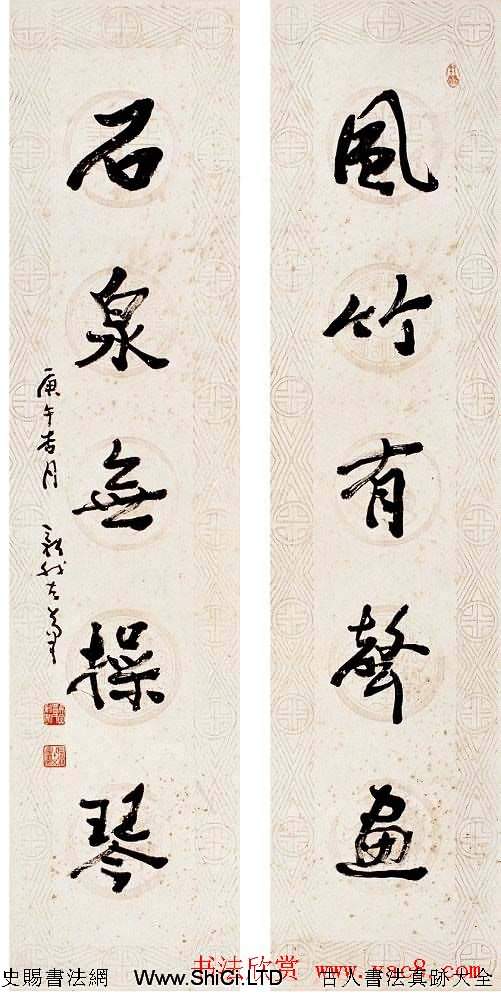 風竹有聲畫
石泉無操琴
庚午杏月
书法欣赏 www.yac8.com
史賜書法網 Www.ShiCi.LTD 古人書法真跡大全